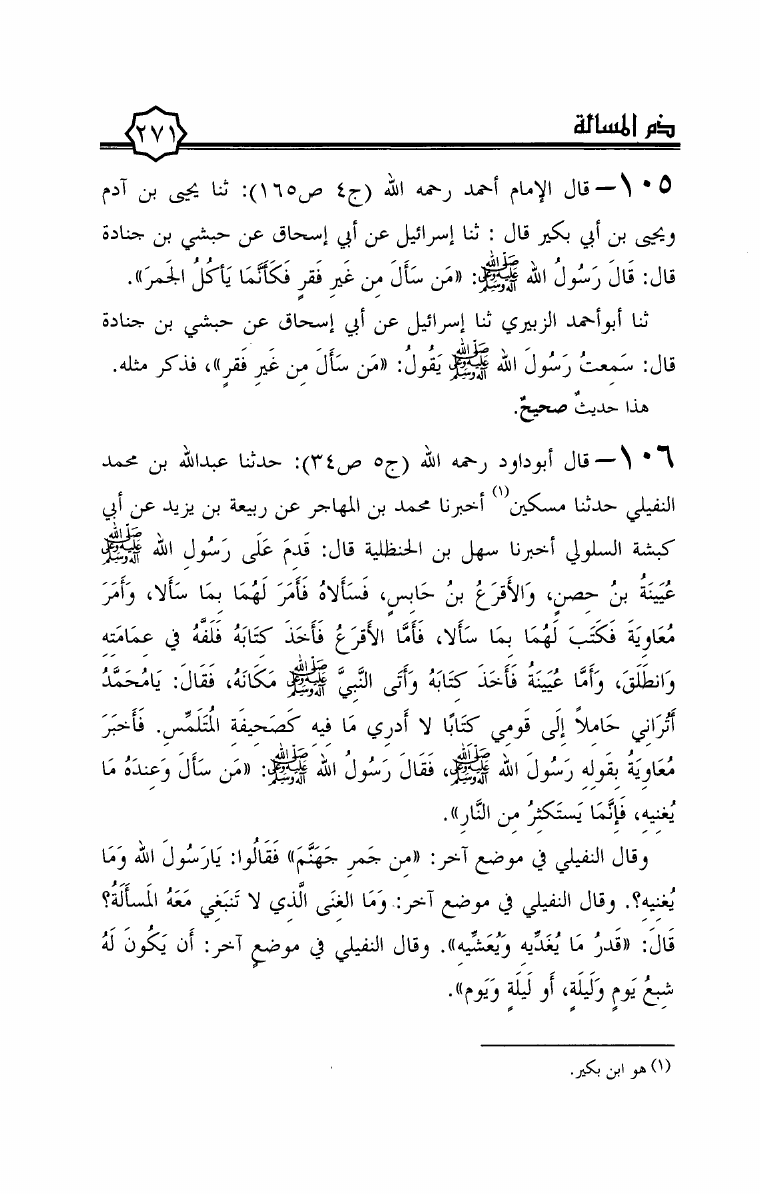 ذم المسألة
٢٧١
١٠٥- قال الإمام أحمد رحمه الله (ج٤ ص١٦٥): ثنا يحيى بن آدم
ويحيى بن أبي بكير قال : ثنا إسرائيل عن أبي إسحاق عن حبشي بن جنادة
قال: قَالَ رَسُولُ الله ﷺ: «مَن سَأَلَ مِن غَيرِ فَقرٍ فَكَأَنَّمَا يَأكُلُ الجَمرَ».
ثنا أبوأحمد الزبيري ثنا إسرائيل عن أبي إسحاق عن حبشي بن جنادة
قال: سَمِعتُ رَسُولَ الله ﷺ يَقُولُ: «مَن سَأَلَ مِن غَيرِ فَقرٍ»، فذكر مثله.
هذا حديثٌ صحيحٌ.
١٠٦- قال أبوداود رحمه الله (ج٥ ص٣٤): حدثنا عبدالله بن محمد
النفيلي حدثنا مسكين(١) أخبرنا محمد بن المهاجر عن ربيعة بن يزيد عن أبي
كبشة السلولي أخبرنا سهل بن الحنظلية قال: قَدِمَ عَلَى رَسُولِ الله ﷺ
عُيَينَةُ بنُ حِصنٍ، وَالأَقرَعُ بنُ حَابِسٍ، فَسَأَلاهُ فَأَمَرَ لَهُمَا بِمَا سَأَلا، وَأَمَرَ
مُعَاوِيَةَ فَكَتَبَ لَهُمَا بِمَا سَأَلا، فَأَمَّا الأَقرَعُ فَأَخَذَ كِتَابَهُ فَلَفَّهُ فِي عِمَامَتِهِ
وَانطَلَقَ، وَأَمَّا عُيَينَةُ فَأَخَذَ كِتَابَهُ وَأَتَى النَّبِيَّ ﷺ مَكَانَهُ، فَقَالَ: يَامُحَمَّدُ
أَتُرَانِي حَامِلاً إِلَى قَومِي كِتَابًا لا أَدرِي مَا فِيهِ كَصَحِيفَةِ المُتَلَمِّسِ. فَأَخبَرَ
مُعَاوِيَةُ بِقَولِهِ رَسُولَ الله ﷺ، فَقَالَ رَسُولُ الله ﷺ: «مَن سَأَلَ وَعِندَهُ مَا
يُغنِيهِ، فَإِنَّمَا يَستَكثِرُ مِن النَّارِ».
وقال النفيلي في موضع آخر: «مِن جَمرِ جَهَنَّمَ» فَقَالُوا: يَارَسُولَ الله وَمَا
يُغنِيهِ؟. وقال النفيلي في موضع آخر: وَمَا الغِنَى الَّذِي لا تَنبَغِي مَعَهُ المَسأَلَةُ؟
قَالَ: «قَدرُ مَا يُغَدِّيهِ وَيُعَشِّيهِ». وقال النفيلي في موضعٍ آخر: أَن يَكُونَ لَهُ
شِبعُ يَومٍ وَلَيلَةٍ، أَو لَيلَةٍ وَيَومٍ».
(١) هو ابن بكير.